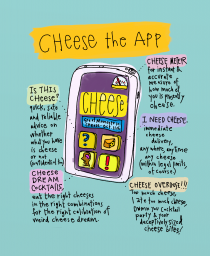 CHEESE THE APP
IS THIS
CHEESE?
quick, safe
and reliable
advice on
whether
what you have
is cheese
or not
CHEESE
DREAM
COCKTAILS,
eat the right cheeses
in the right combinations
for the right calibration of
weird cheese dream.
CHEESE
?
!
CHEESE METER
for instant &
accurate
measure of
how much of
you is presently
cheese.
I NEED CHEESE.
immediate
cheese
delivery,
anywhere, any time
any cheese
(within legal limits,
of course).
CHEESE OVERDOSE!!
too much cheese,
too much cheese,
party &
deceptively sized
cheese bites!